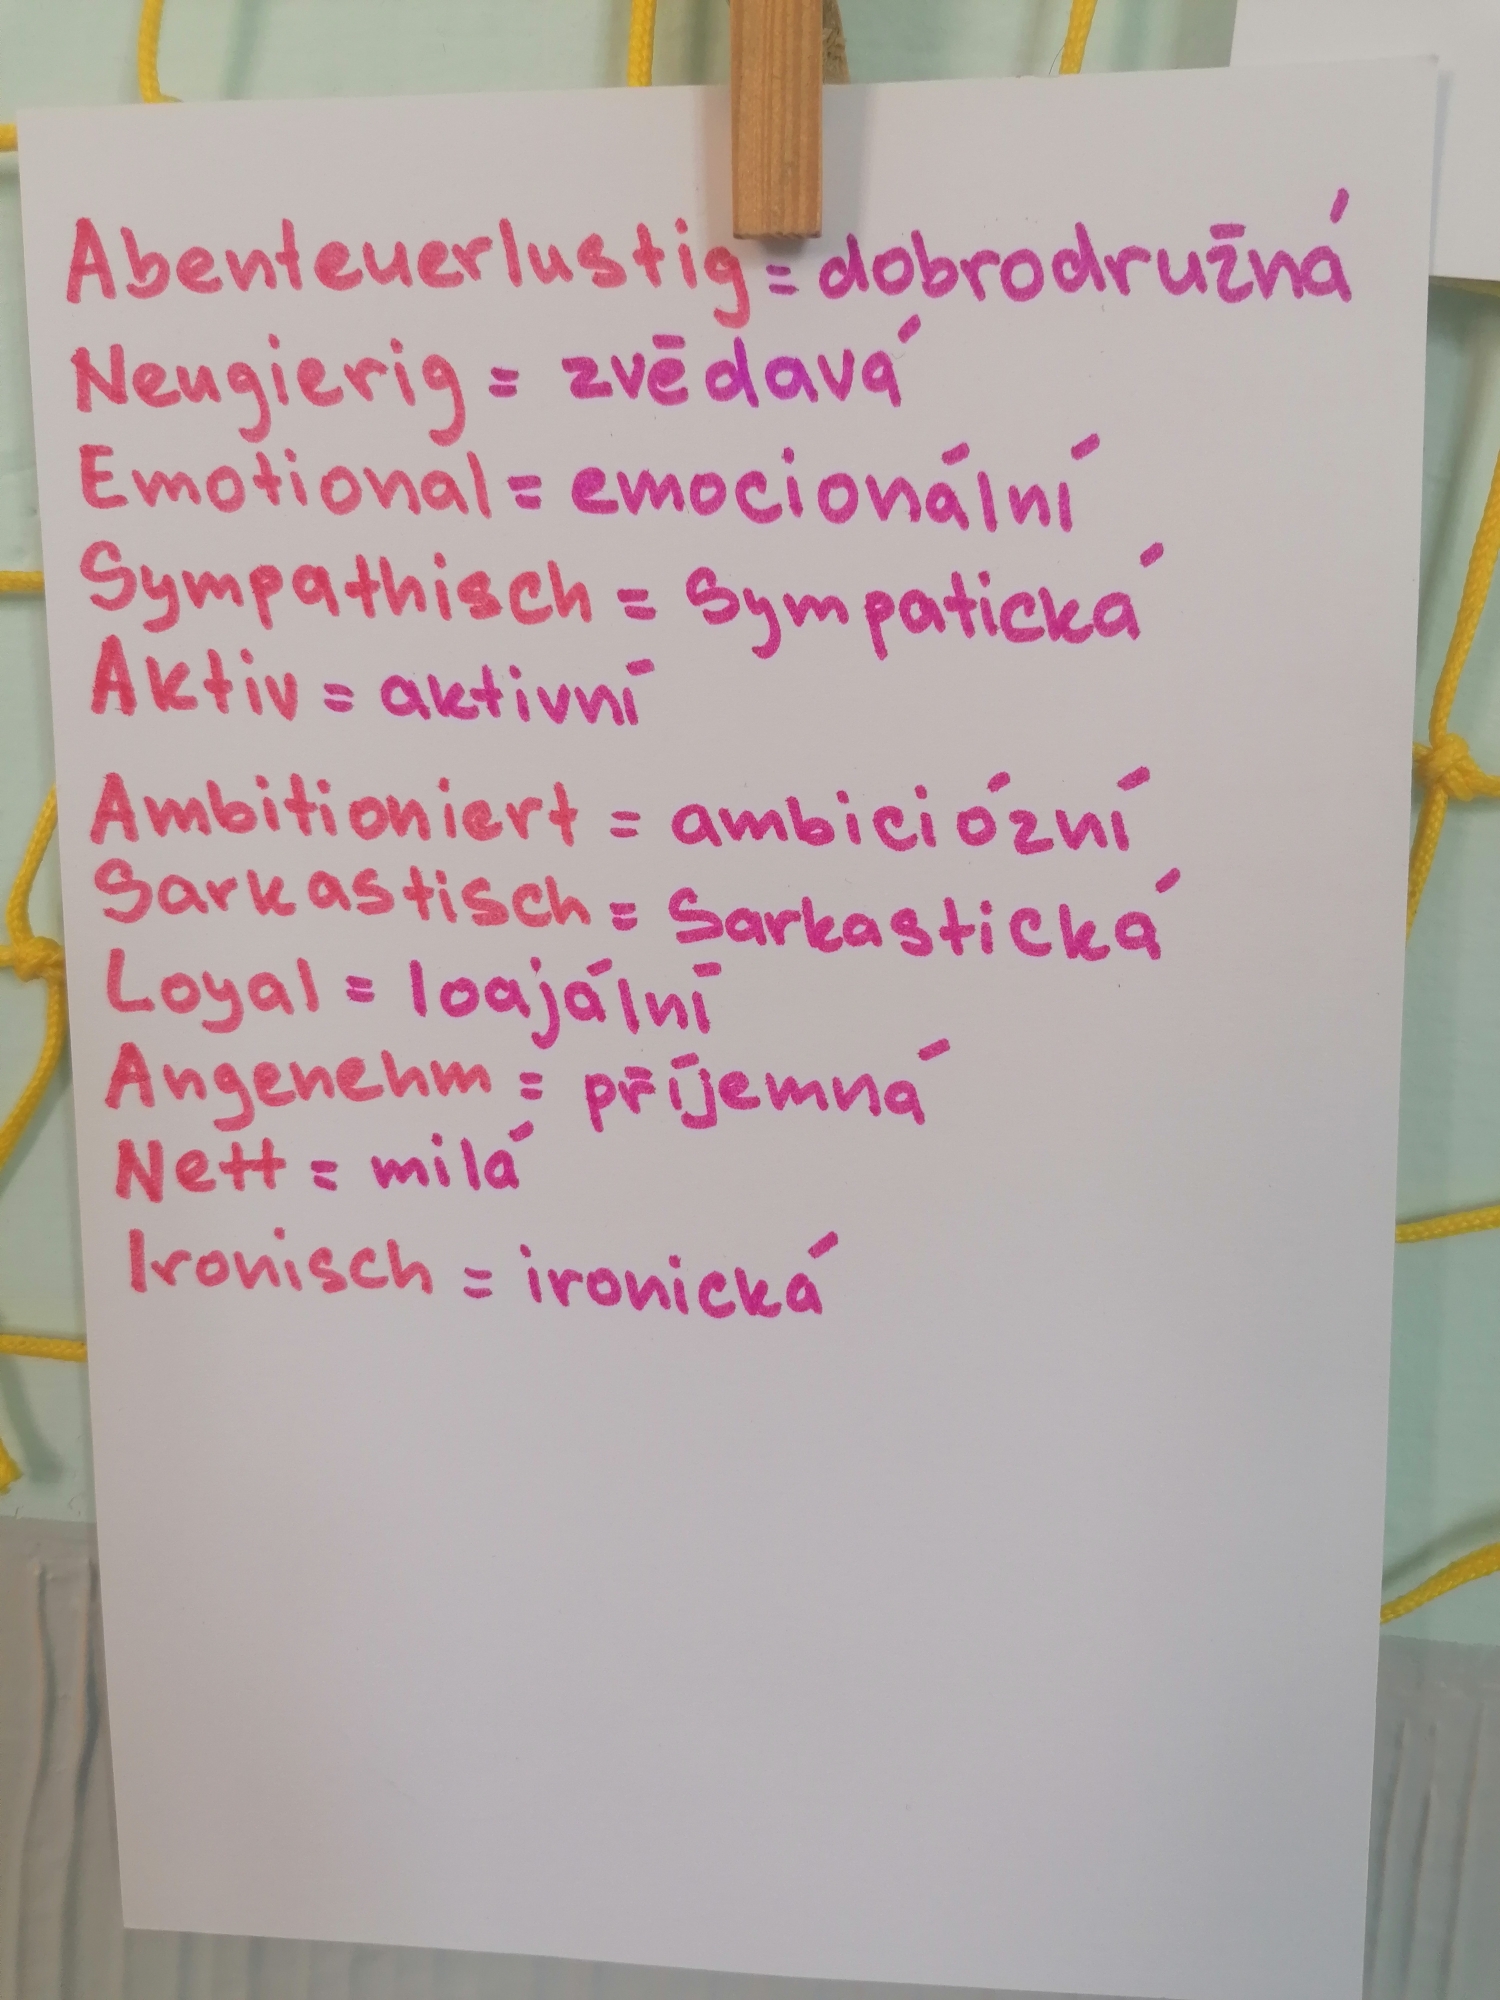 Abenteuerlustig = dobrodružná
Neugierig = zvědavá
Emotional = emocionální
Sympathisch = Sympatická
Aktiv = aktivní
Ambitioniert = ambiciózní
Sarkastisch = Sarkastická
Loyal = loajální
Angenehm = příjemná
Nett = milá
Ironisch = ironická